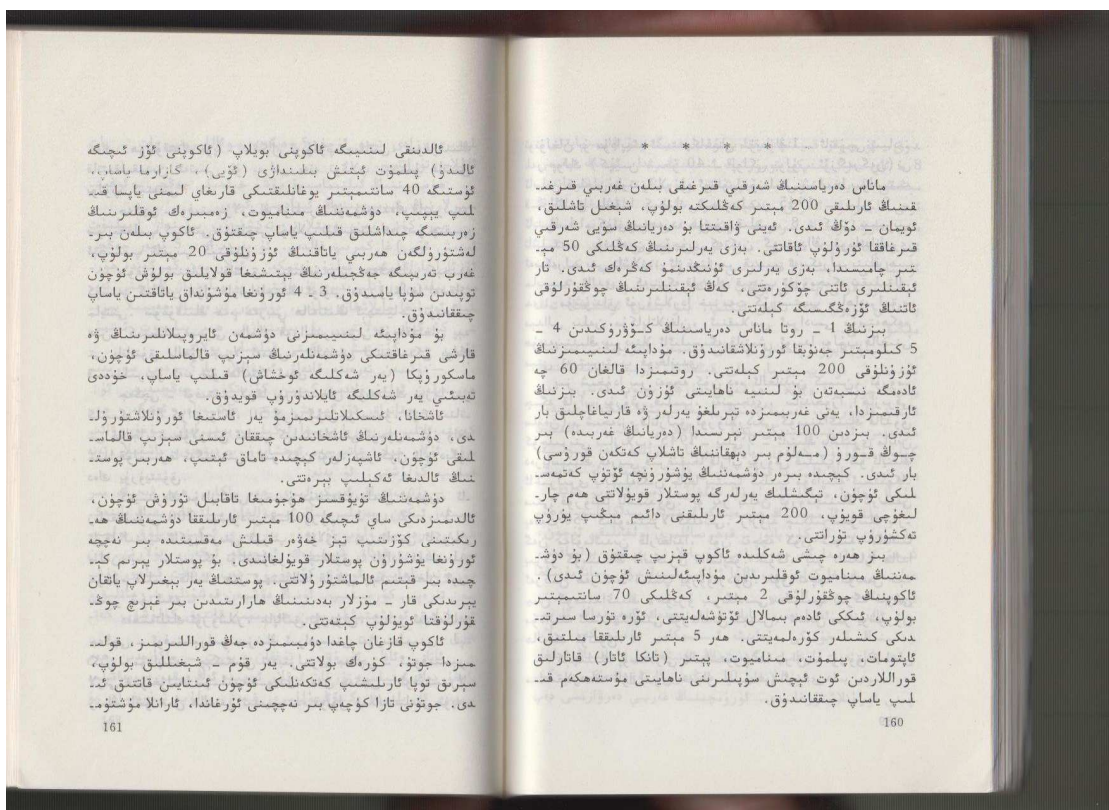 * * * *
ماناس دەرياسىنىڭ شەرقىي قىرغىقى بىلەن غەربىي قىرغىــ
قىنىڭ ئارىلىقى 200 مېتىر كەڭلىكتە بولۇپ، شېغىل تاشلىق،
ئويمان ــ دۆڭ ئىدى. ئەينى ۋاقىتتا بۇ دەريانىڭ سۈيى شەرقىي
قىرغاققا ئۇرۇلۇپ ئاقاتتى. بەزى يەرلىرىنىڭ كەڭلىكى 50 مېــ
تىر چامىسىدا، بەزى يەرلىرى ئۇنىڭدىنمۇ كەڭرەك ئىدى. تار
ئېقىنلىرى ئاتنى چۆكۈرەتتى، كەڭ ئېقىنلىرىنىڭ چوڭقۇرلۇقى
ئاتنىڭ ئۈزەڭگىسىگە كېلەتتى.
بىزنىڭ 1 ــ روتا ماناس دەرياسىنىڭ كــۆۋرۈكىدىن 4 ــ
5 كىلومېتىر جەنۇبقا ئورۇنلاشقانىدۇق. مۇداپىئە لىنىيىمىزنىڭ
ئۇزۇنلۇقى 200 مېتىر كېلەتتى. روتىمىزدا قالغان 60 چە
ئادەمگە نىسبەتەن بۇ لىنىيە ناھايىتى ئۇزۇن ئىدى. بىزنىڭ
ئارقىمىزدا، يەنى غەربىمىزدە تېرىلغۇ يەرلەر ۋە قارىياغاچلىق بار
ئىدى. بىزدىن 100 مېتىر نېرىسىدا (دەريانىڭ غەربىدە) بىر
چــوڭ قــورۇ (مــەلۇم بىر دېھقاننىڭ تاشلاپ كەتكەن قورۇسى)
بار ئىدى. كېچىدە بىرەر دۈشمەننىڭ يۇشۇرۇنچە ئۆتۈپ كەتمەســ
لىكى ئۈچۈن، تېگىشلىك يەرلەرگە پوستلار قويۇلاتتى ھەم چارــ
لىغۇچى قويۇپ، 200 مېتىر ئارىلىقنى دائىم مېڭىپ يۈرۈپ
تەكشۈرۈپ تۇراتتى.
بىز ھەرە چىشى شەكلىدە ئاكوپ قېزىپ چىقتۇق (بۇ دۈشــ
مەننىڭ مىناميوت ئوقلىرىدىن مۇداپىئەلىنىش ئۈچۈن ئىدى).
ئاكوپنىڭ چوڭقۇرلۇقى 2 مېتىر، كەڭلىكى 70 سانتىمېتىر
بولۇپ، ئىككى ئادەم بىمالال ئۆتۈشەلەيتتى، ئۆرە تۇرسا سىرتــ
دىكى كىشىلەر كۆرەلمەيتتى. ھەر 5 مېتىر ئارىلىققا مىلتىق،
ئاپتومات، پىلمۇت، مىناميوت، پېتىر (تانكا ئاتار) قاتارلىق
قوراللاردىن ئوت ئېچىش سۇپىلىرىنى ناھايىتى مۇستەھكەم قىــ
لىپ ياساپ چىققانىدۇق.
160
ئالدىنقى لىنىيىگە ئاكوپنى بويلاپ (ئاكوپنى ئۆز ئىچىگە
ئالىدۇ) پىلمۇت ئېتىش بىلىنداژى (ئۆيى)، كازارما ياساپ،
ئۈستىگە 40 سانتىمېتىر يوغانلىقتىكى قارىغاي لىمنى ياپسا قىــ
لىپ يېپىپ، دۈشمەننىڭ مىناميوت، زەمبىرەك ئوقلىرىنىڭ
زەربىسىگە چىداشلىق قىلىپ ياساپ چىقتۇق. ئاكوپ بىلەن بىرــ
لەشتۈرۈلگەن ھەربىي ياتاقنىڭ ئۇزۇنلۇقى 20 مېتىر بولۇپ،
غەرب تەرىپىگە جەڭچىلەرنىڭ يېتىشىغا قولايلىق بولۇش ئۈچۈن
توپىدىن سۇپا ياسىدۇق. 3 ــ 4 ئورۇنغا مۇشۇنداق ياتاقتىن ياساپ
چىققانىدۇق.
بۇ مۇداپىئە لىنىيىمىزنى دۈشمەن ئايروپىلانلىرىنىڭ ۋە
قارشى قىرغاقتىكى دۈشمەنلەرنىڭ سېزىپ قالماسلىقى ئۈچۈن،
ماسكوروپكا (يەر شەكلىگە ئوخشاش) قىلىپ ياساپ، خۇددى
تەبىئىي يەر شەكلىگە ئايلاندۇرۇپ قويدۇق.
ئاشخانا، ئىسكىلاتلىرىمىزمۇ يەر ئاستىغا ئورۇنلاشتۇرۇلــ
دى، دۈشمەنلەرنىڭ ئاشخانىدىن چىققان ئىسنى سېزىپ قالماســ
لىقى ئۈچۈن. ئاشپەزلەر كېچىدە تاماق ئېتىپ، ھەربىر پوستــ
نىڭ ئالدىغا ئەكىلىپ بېرەتتى.
دۈشمەننىڭ تۇيۇقسىز ھۇجۇمىغا تاقابىل تۇرۇش ئۈچۈن،
ئالدىمىزدىكى ساي ئىچىگە 100 مېتىر ئارىلىققا دۈشمەننىڭ ھەــ
رىكىتىنى كۆزىتىپ تېز خەۋەر قىلىش مەقسىتىدە بىر نەچچە
ئورۇنغا يۇشۇرۇن پوستلار قويۇلغانىدى. بۇ پوستلار يېرىم كېــ
چىدە بىر قېتىم ئالماشتۇرۇلاتتى. پوستنىڭ يەر بېغىرلاپ ياتقان
يېرىدىكى قار ــ مۇزلار بەدىنىنىڭ ھارارىتىدىن بىر غېرىچ چوڭــ
قۇرلۇقتا ئويۇلۇپ كېتەتتى.
ئاكوپ قازغان چاغدا دۈمبىمىزدە جەڭ قوراللىرىمىز، قولىــ
مىزدا جوتۇ، كۈرەك بولاتتى. يەر قۇم ــ شېغىللىق بولۇپ،
سېرىق توپا ئارىلىشىپ كەتكەنلىكى ئۈچۈن ئىنتايىن قاتتىق ئىــ
دى. جوتۇنى تازا كۈچەپ بىر نەچچىنى ئۇرغاندا، ئارانلا مۇشتۇمــ
161